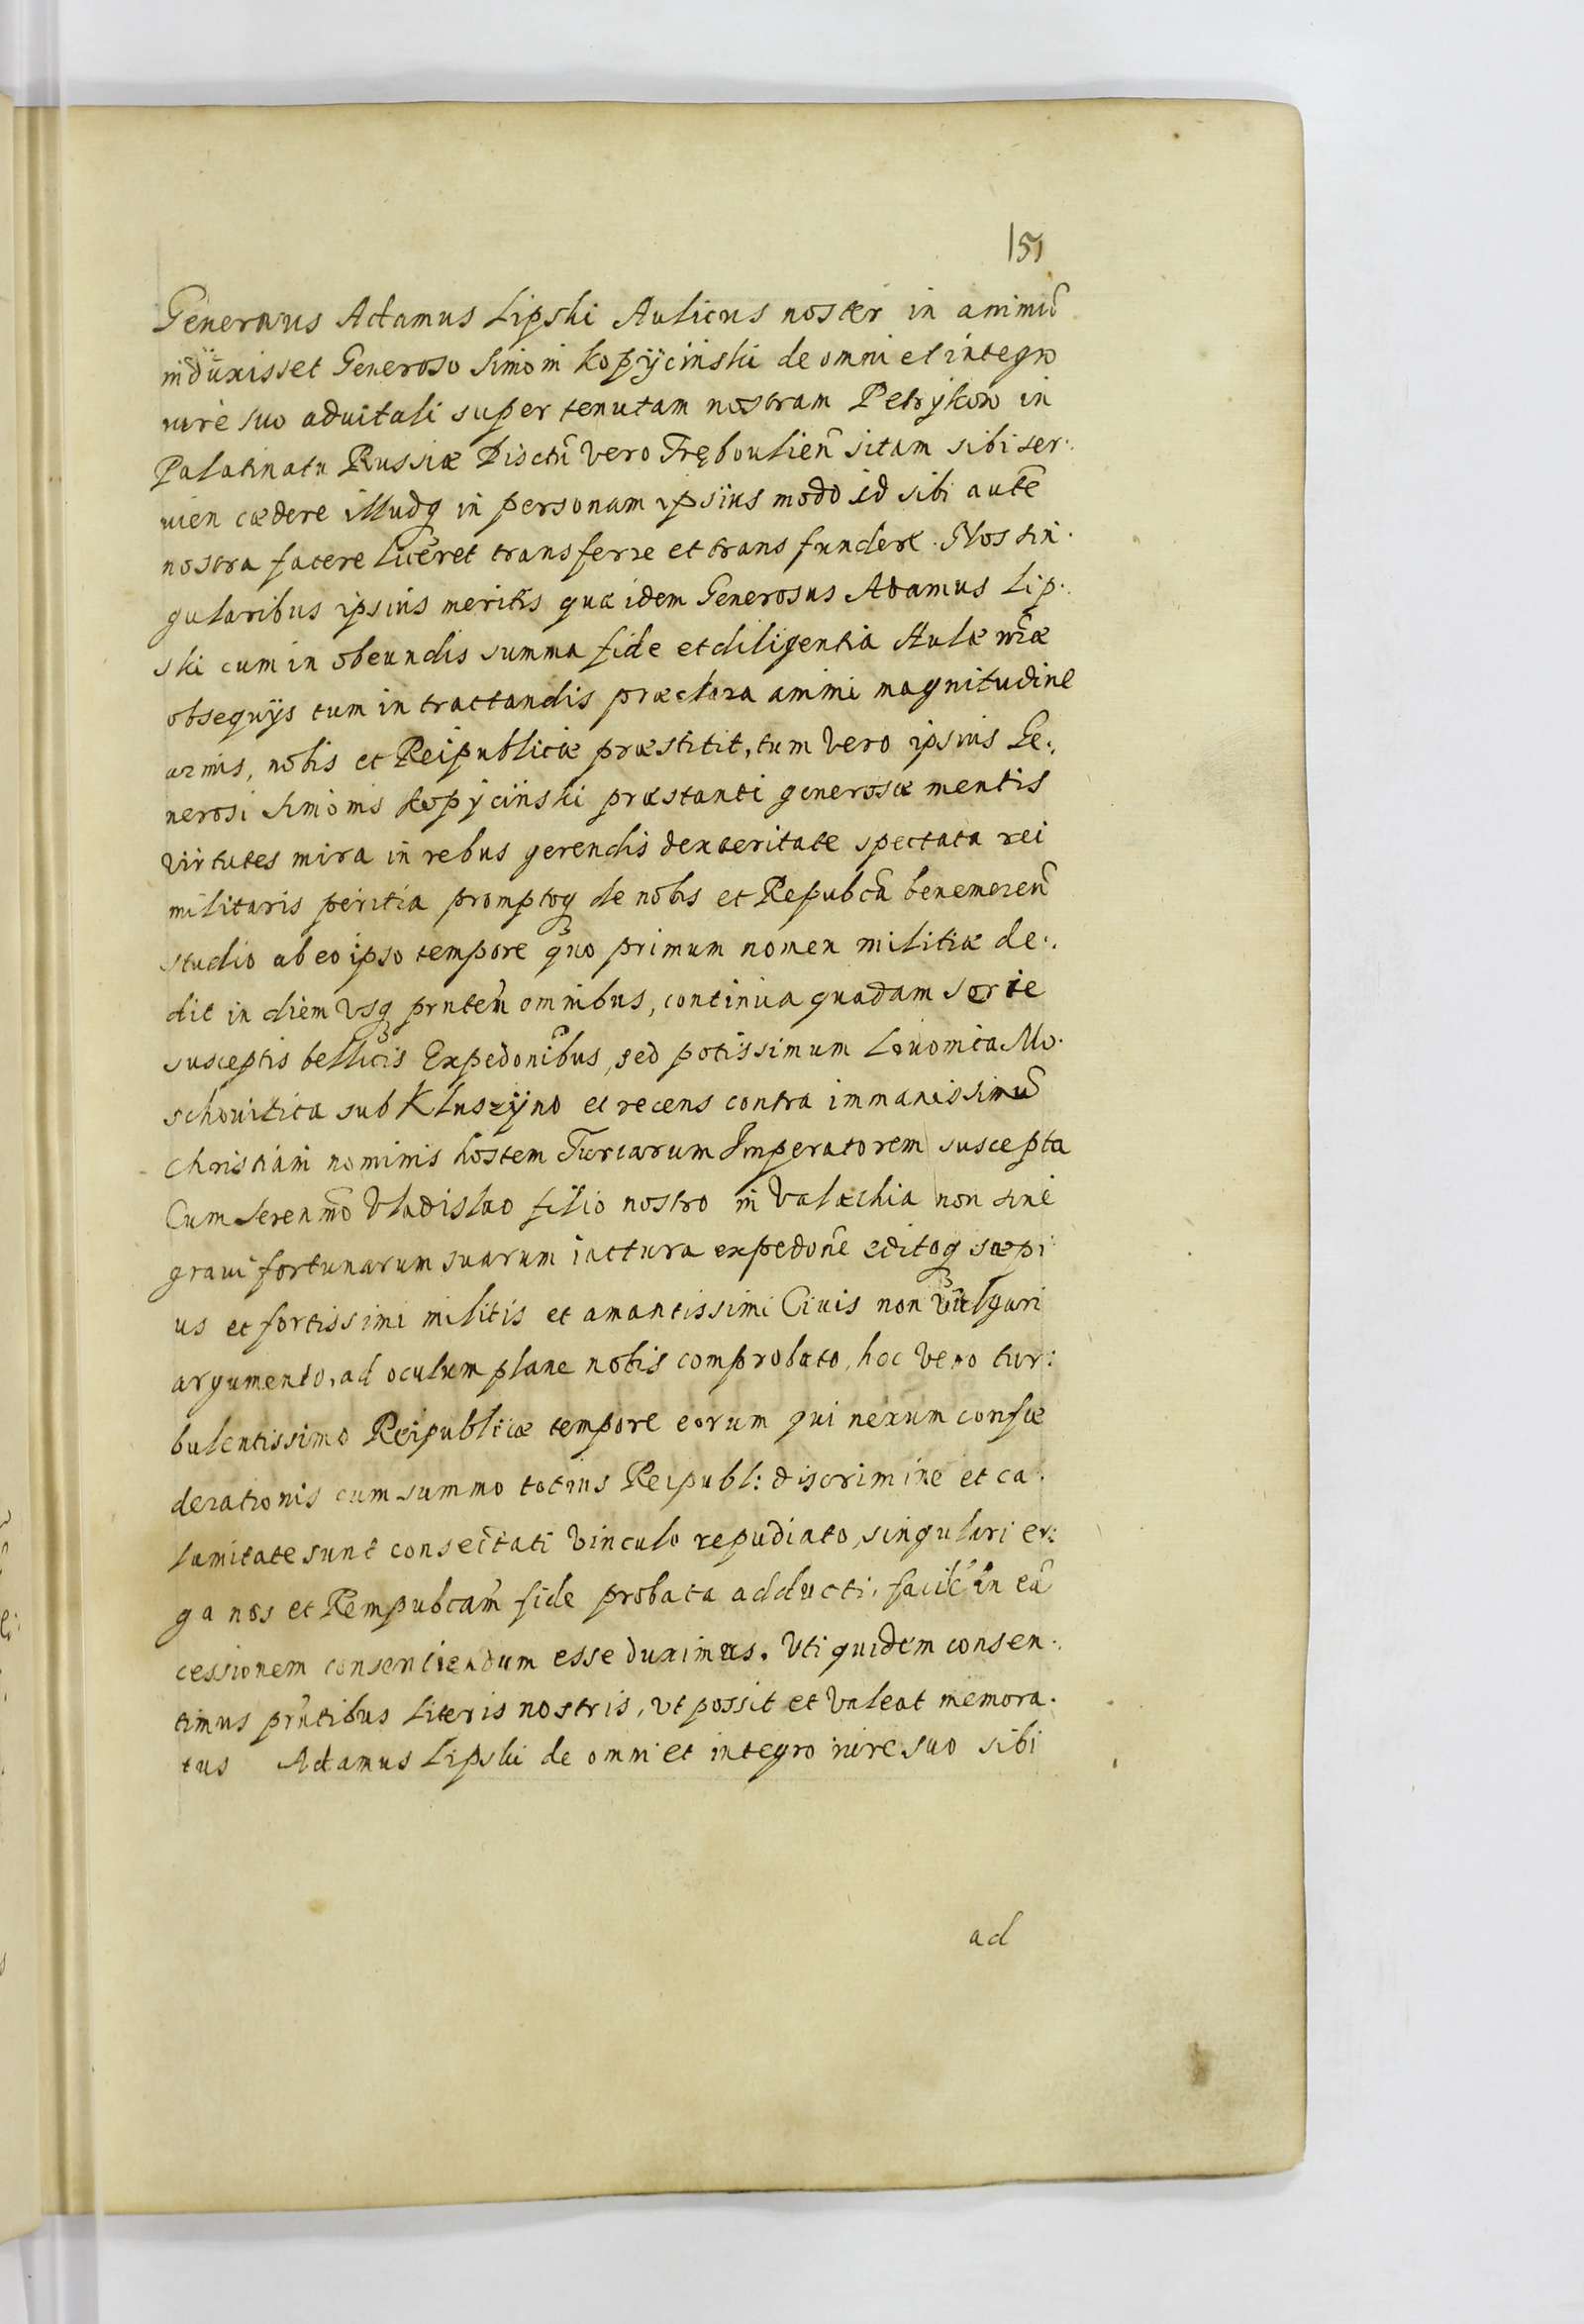 151
Generosus Adamus Lipski Aulicus noster in animũ
induxisset Generoso Simoni Kopÿcinski de omni et integro
iure suo aduitali super tenutam nostram Petrÿkow in
Palatinatu Russiæ Disctũ vero Trębouliem̃ sitam sibi ser:
uien cædere illudq in personam ipsius modo id sibi autẽ
nostra facere liceret transferre et transfundere. Nos sin:
gularibus ipsius meritis quæ idem Generosus Adamus Lip:
ski cum in obeundis summa fide et diligentia Aulæ nr̃æ
obsequÿs tum in tractandis præclara animi magnitudine
armis, nobis et Reipublicæ præstitit, tum vero ipsius Ge:
nerosi Simonis Kopÿcinski præstanti generosæ mentis
virtutes mira in rebus gerendis dexteritate spectata rei
militaris peritia promptoq de nobis et Repubcã benemeren̄
studio ab eo ipso tempore quo primum nomen militiæ de:
dit in diem vsq prntem̃ omnibus, continua quadam serie
susceptis bellicis Expedonĩbus, sed potissimum Liuonica Mo:
schouitica sub Kluszÿno et recens contra immanissimũ
Christiani nominis hostem Turcarum Imperatorem suscepta
Cum Serenm̃o Vladislao filio nostro in Valachia non sine
graui fortunarum suarum iactura expedonẽ editoq sæpi
us et fortissimi militis et amantissimi Ciuis non vulgari
argumento, ad oculum plane nobis comprobato, hoc vero tur:
bulentissimo Reipublicæ tempore eorum qui nexum confæ
derationis cum summo totius Reipubl: discrimine et ca:
lamitate sunt consectati vinculo repudiato, singulari er:
ga nos et Rempubcam̃ fide probata adducti, facilẽ in eã
cessionem consentiendum esse duximus. Vti quidem consen:
timus prñtibus literis nostris, vt possit et valeat memora:
tus Adamus Lipski de omni et integro iure suo sibi
ad